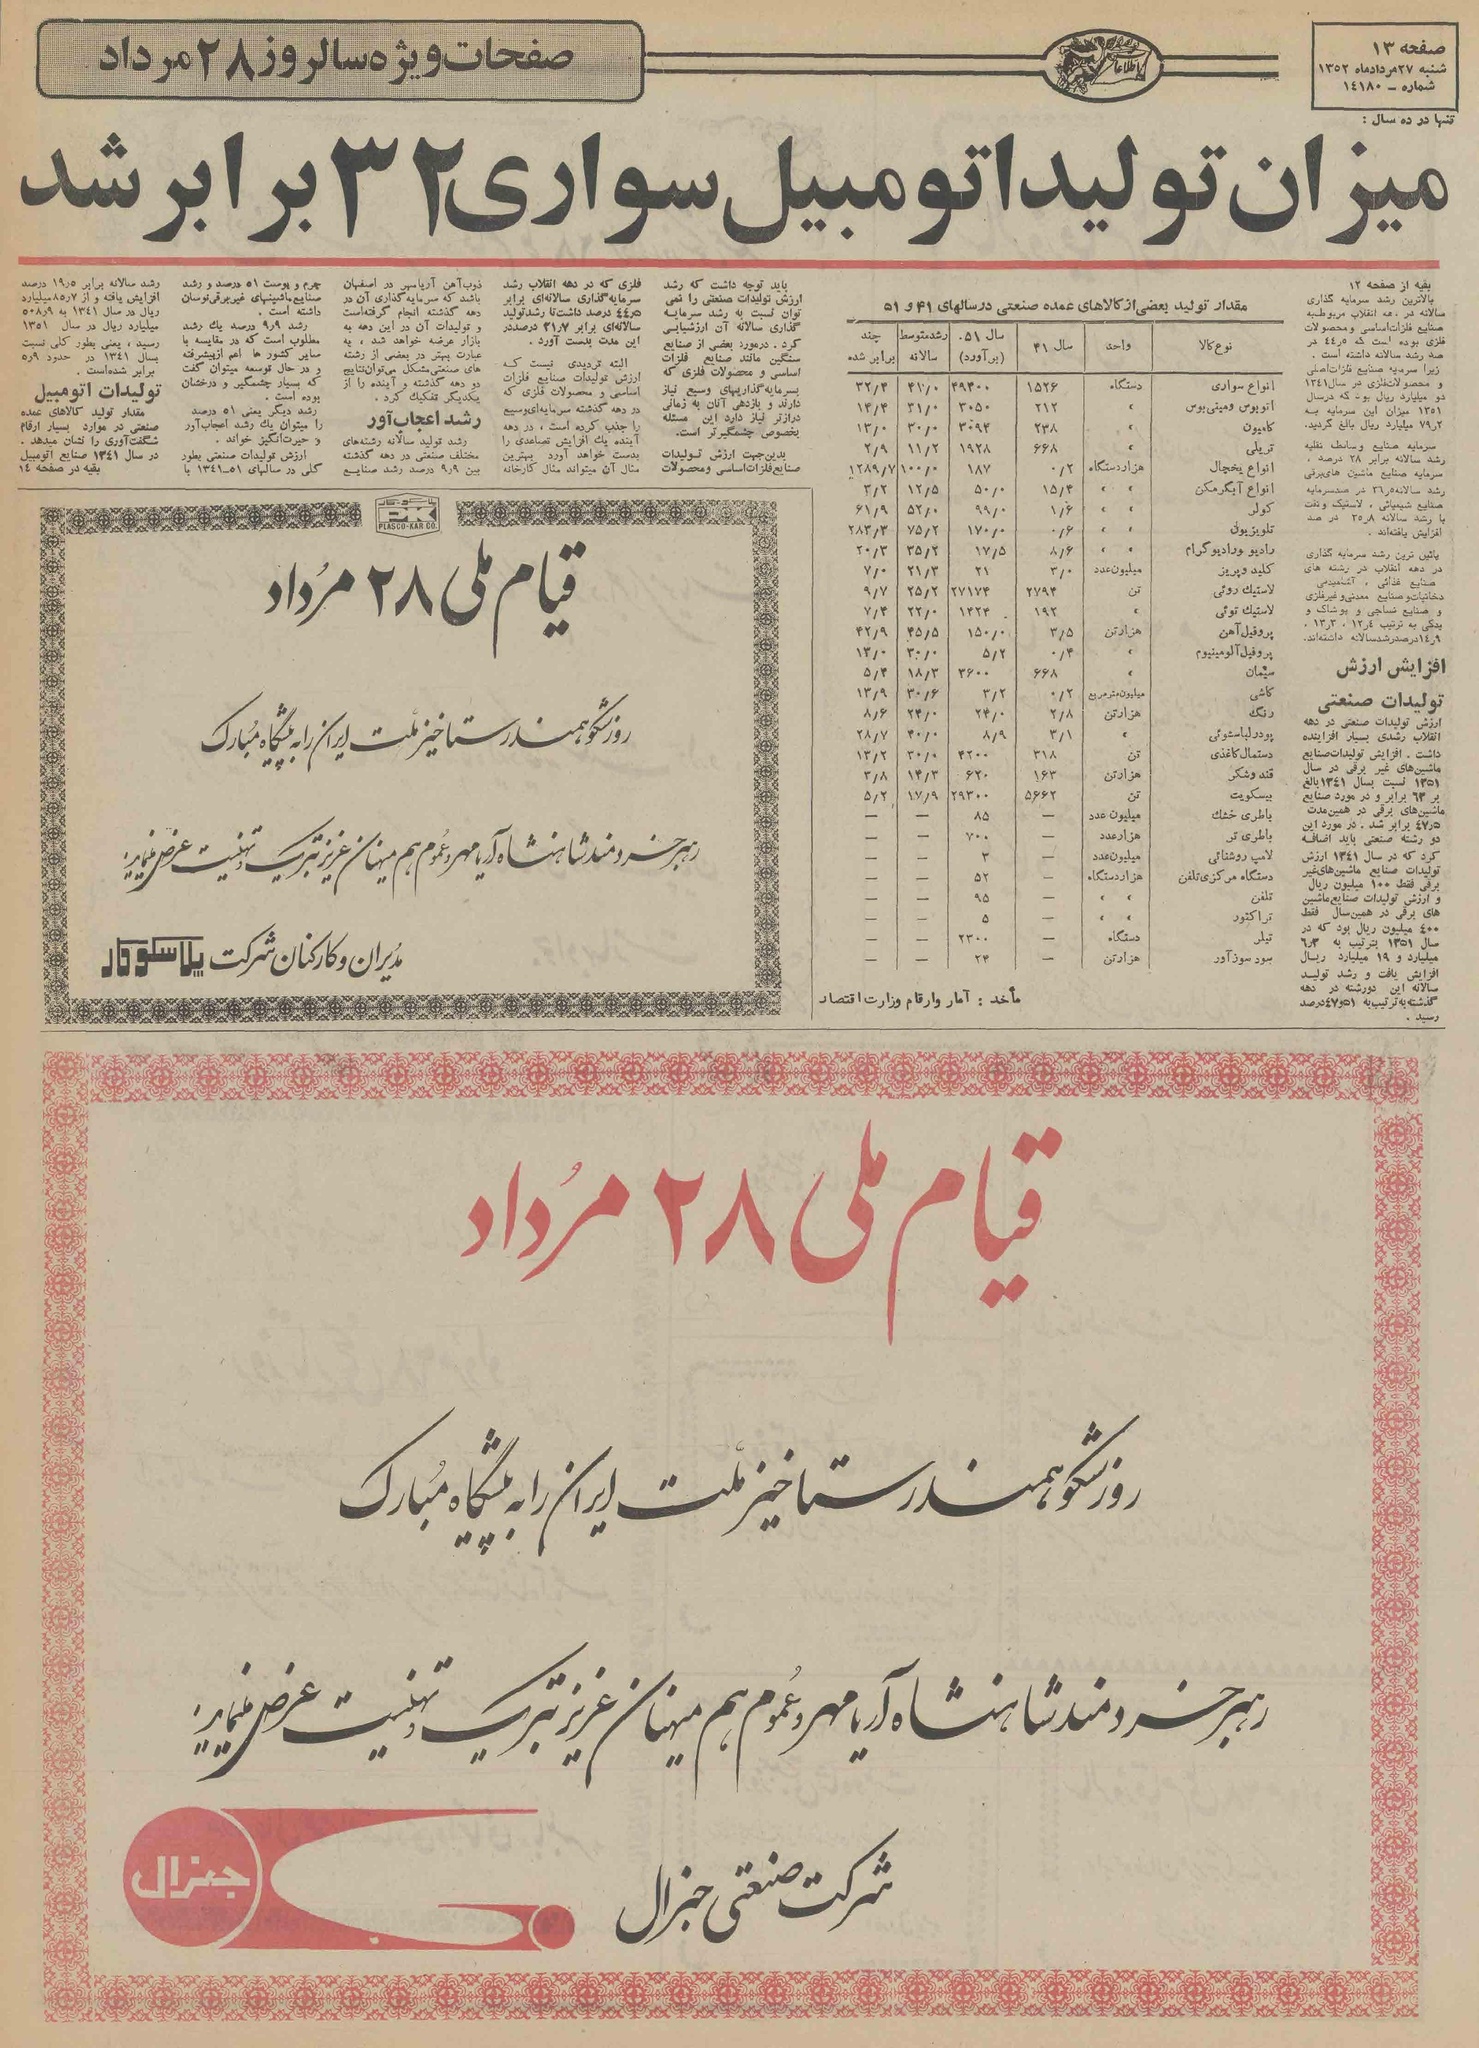 صفحه ۱۳
شنبه ۲۷ مرداد ماه ۱۳۵۲
شماره – ۱۴۱۸۰
اطلاعات
صفحات ویژه سالروز ۲۸ مرداد
تنها در ده سال :
میزان تولید اتومبیل سواری ۳۲ برابر شد
بقیه از صفحه ۱۲
بالاترین رشد سرمایه گذاری
سالانه در دهه انقلاب مربوط به
صنایع فلزات اساسی و محصولات
فلزی بوده است که ۴۴٫۵ در
صد رشد سالانه داشته است .
زیرا سرمایه صنایع فلزات اصلی
و محصولات فلزی در سال ۱۳۴۱
دو میلیارد ریال بود که در سال
۱۳۵۱ میزان این سرمایه به
۷۹٫۲ میلیارد ریال بالغ گردید.
سرمایه صنایع وسائط نقلیه
رشد سالانه برابر ۲۸ درصد ،
سرمایه صنایع ماشین های برقی
رشد سالانه ۲۶٫۵ در صد سرمایه
صنایع شیمیائی ، لاستیک و نفت
با رشد سالانه ۲۵٫۸ در صد
افزایش یافته‌اند .
پائین ترین رشد سرمایه گذاری
در دهه انقلاب در رشته های
صنایع غذائی ، آشامیدنی
دخانیات و صنایع معدنی و غیر فلزی
و صنایع نساجی و پوشاک و
یدکی به ترتیب ۱۲٫۴ ، ۱۳٫۳ ،
۱۴٫۹ درصد رشد سالانه داشته‌اند.
افزایش ارزش
تولیدات صنعتی
ارزش تولیدات صنعتی در دهه
انقلاب رشدی بسیار افزاینده
داشت . افزایش تولیدات صنایع
ماشین‌های غیر برقی در سال
۱۳۵۱ نسبت بسال ۱۳۴۱ بالغ
بر ۶۳ برابر و در مورد صنایع
ماشین‌های برقی در همین مدت
۴۷٫۵ برابر شد . در مورد این
دو رشته صنعتی باید اضافه
کرد که در سال ۱۳۴۱ ارزش
تولیدات صنایع ماشین‌های غیر
برقی فقط ۱۰۰ میلیون ریال
و ارزش تولیدات صنایع ماشین
های برقی در همین سال فقط
۴۰۰ میلیون ریال بود که در
سال ۱۳۵۱ بترتیب به ۶٫۳
میلیارد و ۱۹ میلیارد ریال
افزایش یافت و رشد تولید
سالانه این دو رشته در دهه
گذشته به ترتیب به ۵۱ و ۴۷ درصد
رسید .
مقدار تولید بعضی از کالاهای عمده صنعتی در سالهای ۴۱ و ۵۱
نوع کالا واحد سال ۴۱ سال ۵۱ (برآورد) رشد متوسط سالانه چند برابر شده
انواع سواری دستگاه ۱۵۲۶ ۴۹۴۰۰ ۴۱/۰ ۳۲/۴
اتوبوس و مینی بوس » ۲۱۲ ۳۰۵۰ ۳۱/۰ ۱۴/۴
کامیون » ۲۳۸ ۳۰۹۴ ۳۰/۰ ۱۳/۰
تریلی » ۶۶۸ ۱۹۲۸ ۱۱/۲ ۲/۹
انواع یخچال هزار دستگاه ۰/۲ ۱۸۷ ۱۰۰/۰ ۱۲۸۹/۷
انواع آبگرمکن » » ۱۵/۴ ۵۰/۰ ۱۲/۵ ۳/۲
کولر » » ۱/۶ ۹۹/۰ ۵۲/۰ ۶۱/۹
تلویزیون » » ۰/۶ ۱۷۰/۰ ۷۵/۲ ۲۸۳/۳
رادیو و رادیوگرام » » ۸/۶ ۱۷/۵ ۳۵/۲ ۲۰/۳
کلید و پریز میلیون عدد ۳/۰ ۲۱ ۲۱/۳ ۷/۰
لاستیک روئی تن ۲۷۹۴ ۲۷۱۷۴ ۲۵/۲ ۹/۷
لاستیک توئی » ۱۹۲ ۱۴۲۴ ۲۲/۰ ۷/۴
پروفیل آهن هزار تن ۳/۵ ۱۵۰/۰ ۴۵/۵ ۴۲/۹
پروفیل آلومینیوم » ۰/۴ ۵/۲ ۳۰/۰ ۱۳/۰
سیمان » ۶۶۸ ۳۶۰۰ ۱۸/۳ ۵/۴
کاشی میلیون متر مربع ۰/۲ ۳/۲ ۳۰/۶ ۱۳/۹
رنگ هزار تن ۲/۸ ۲۴/۰ ۲۴/۰ ۸/۶
پودر لباسشوئی » ۳/۱ ۸/۹ ۴۰/۰ ۲۸/۷
دستمال کاغذی تن ۳۱۸ ۴۲۰۰ ۳۰/۰ ۱۳/۲
قند و شکر هزار تن ۱۶۳ ۶۲۰ ۱۴/۳ ۳/۸
بیسکویت تن ۵۶۶۲ ۲۹۳۰۰ ۱۷/۹ ۵/۲
باطری خشک میلیون عدد – ۸۵ – –
باطری تر هزار عدد – ۷۰۰ – –
لامپ روشنائی میلیون عدد – ۳ – –
دستگاه مرکزی تلفن هزار دستگاه – ۵۲ – –
تلفن » » – ۹۵ – –
تراکتور » » – ۵ – –
تیلر دستگاه – ۲۳۰۰ – –
سود سوز آور هزار تن – ۲۴ – –
مأخذ : آمار و ارقام وزارت اقتصاد
باید توجه داشت که رشد
ارزش تولیدات صنعتی را نمی
توان نسبت به رشد سرمایه
گذاری سالانه آن ارزشیابی
کرد . در مورد بعضی از صنایع
سنگین مانند صنایع فلزات
اساسی و محصولات فلزی که
بسرمایه گذاریهای وسیع نیاز
دارند و بازدهی آنان به زمانی
درازتر نیاز دارد این مسئله
بخصوص چشمگیرتر است.
بدین جهت ارزش تولیدات
صنایع فلزات اساسی و محصولات
فلزی که در دهه انقلاب رشد
سرمایه گذاری سالانه‌ای برابر
۴۴٫۵ درصد داشت تا رشد تولید
سالانه‌ای برابر ۲۱٫۷ درصد در
این مدت بدست آورد .
البته تردیدی نیست که
ارزش تولیدات صنایع فلزات
اساسی و محصولات فلزی که
در دهه گذشته سرمایه‌ای وسیع
را جذب کرده است ، در دهه
آینده یک افزایش تصاعدی را
بدست خواهد آورد بهترین
مثال آن میتواند مثال کارخانه
ذوب آهن آریامهر در اصفهان
باشد که سرمایه گذاری آن در
دهه گذشته انجام گرفته است
و تولیدات آن در این دهه به
بازار عرضه خواهد شد ، به
عبارت بهتر در بعضی از رشته
های صنعتی مشکل می‌توان نتایج
دو دهه گذشته و آینده را از
یکدیگر تفکیک کرد .
رشد اعجاب آور
رشد تولید سالانه رشته‌های
مختلف صنعتی در دهه گذشته
بین ۹٫۹ درصد رشد صنایع
چرم و پوست ۵۱ درصد و رشد
صنایع ماشینهای غیر برقی نوسان
داشته است .
رشد ۹٫۹ درصد یک رشد
مطلوب است که در مقایسه با
سایر کشور ها اعم از پیشرفته
و در حال توسعه میتوان گفت
که بسیار چشمگیر و درخشان
بوده است .
رشد دیگر یعنی ۵۱ درصد
را میتوان یک رشد اعجاب آور
و حیرت‌انگیز خواند .
ارزش تولیدات صنعتی بطور
کلی در سالهای ۵۱–۱۳۴۱ با
رشد سالانه برابر ۱۹٫۵ درصد
افزایش یافته و از ۸۵٫۷ میلیارد
ریال در سال ۱۳۴۱ به ۵۰۸٫۹
میلیارد ریال در سال ۱۳۵۱
رسید ، یعنی بطور کلی نسبت
بسال ۱۳۴۱ در حدود ۵٫۹
برابر شده‌است .
تولیدات اتومبیل
مقدار تولید کالاهای عمده
صنعتی در موارد بسیار ارقام
شگفت‌آوری را نشان میدهد .
در سال ۱۳۴۱ صنایع اتومبیل
بقیه در صفحه ۱۴
پلاسکو کار
PK
PLASCO-KAR CO.
قیام ملی ۲۸ مرداد
روز شکوهمند رستاخیز ملت ایران را به پیشگاه مبارک
رهبر خردمند شاهنشاه آریامهر و عموم هم میهنان عزیز تبریک و تهنیت عرض مینماید:
مدیران و کارکنان شرکت پلاسکوکار
قیام ملی ۲۸ مرداد
روز شکوهمند رستاخیز ملت ایران را به پیشگاه مبارک
رهبر خردمند شاهنشاه آریامهر و عموم هم میهنان عزیز تبریک و تهنیت عرض مینماید:
شرکت صنعتی جنرال
جنرال